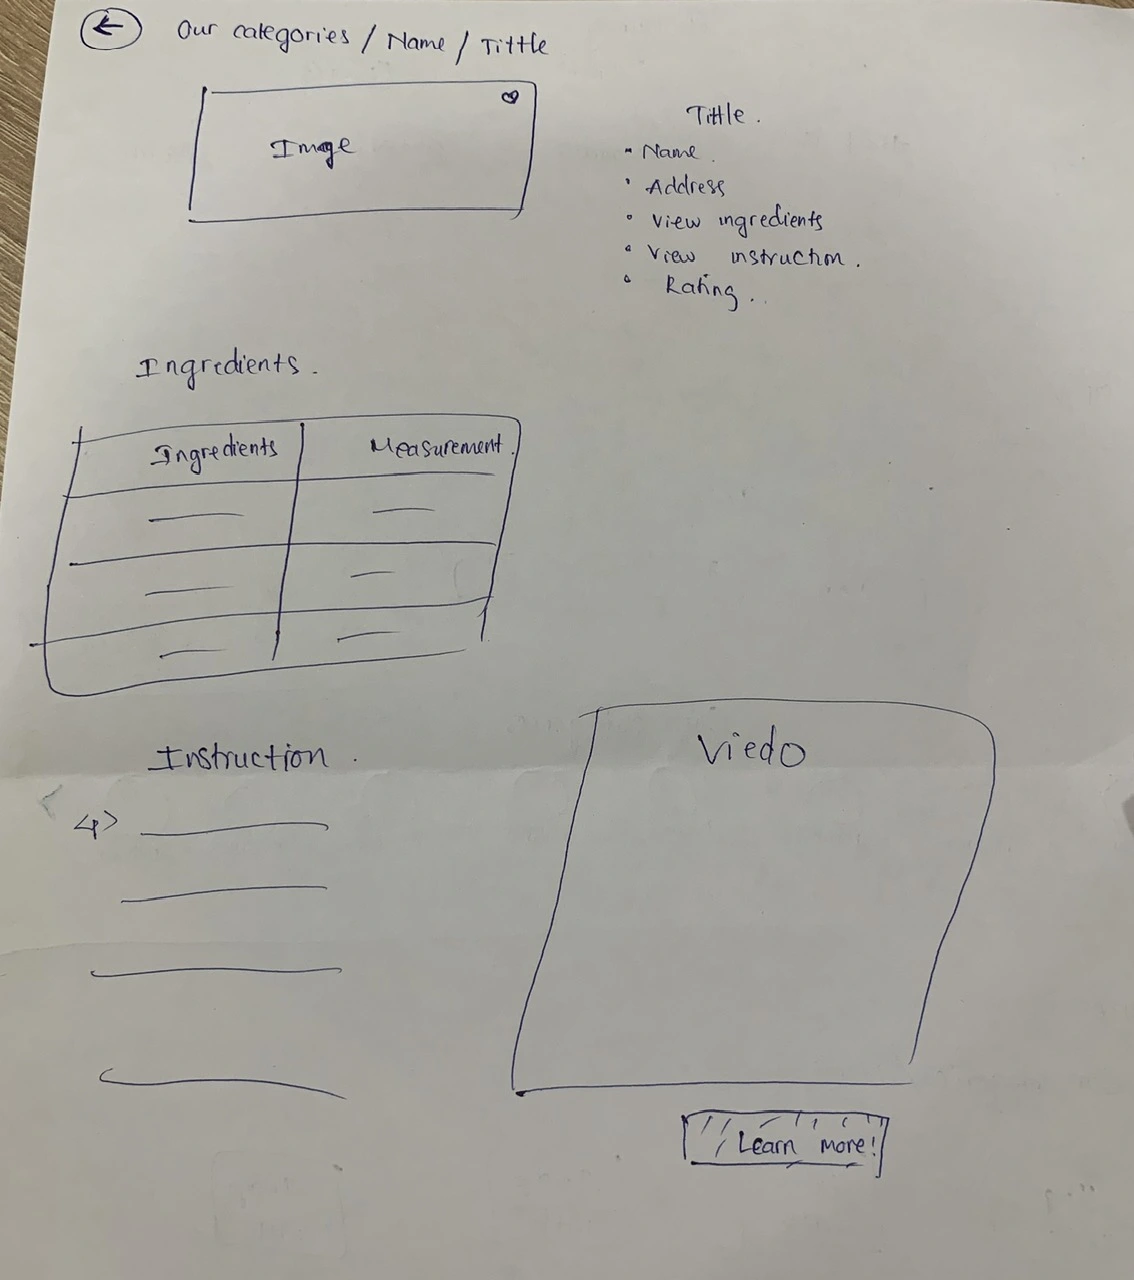 Our categories / Name / Tittle
Image
Tittle.
Name.
Address
View ingredients
View instruction.
Rating..
Ingredients.
Ingredients
Measurement.
Instruction.
Viedo
Learn more!